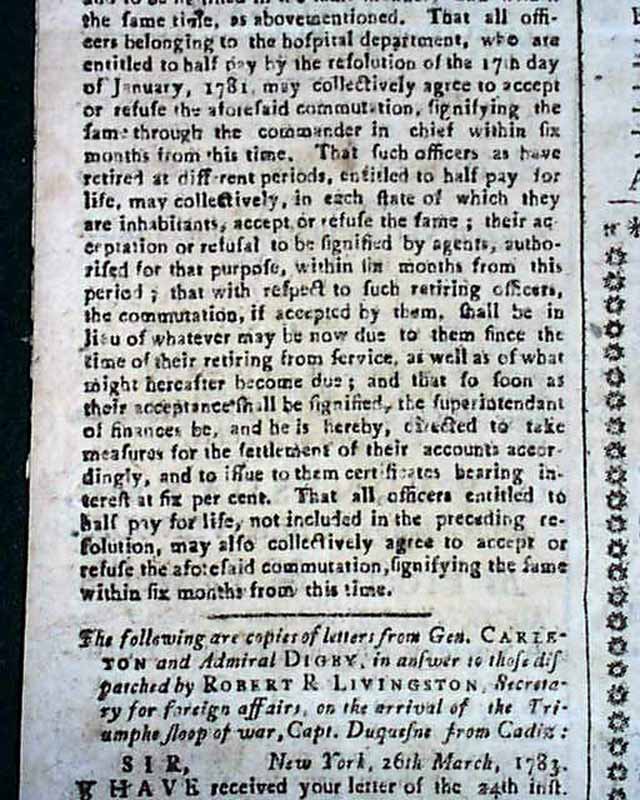 the same time, as abovementioned. That all offi-
cers belonging to the hoſpital department, who are
entitled to half pay by the reſolution of the 17th day
of January, 1781, may collectively agree to accept
or refuſe the aforeſaid commutation, ſignifying the
ſame through the commander in chief within ſix
months from this time. That ſuch officers as have
retired at different periods, entitled to half pay for
life, may collectively, in each ſtate of which they
are inhabitants, accept or refuſe the ſame ; their ac-
ceptation or refuſal to be ſignified by agents, autho-
riſed for that purpoſe, within ſix months from this
period ; that with reſpect to ſuch retiring officers,
the commutation, if accepted by them, ſhall be in
lieu of whatever may be now due to them ſince the
time of their retiring from ſervice, as well as of what
might hereafter become due ; and that ſo ſoon as
their acceptance ſhall be ſignified, the ſuperintendant
of finances be, and he is hereby, directed to take
meaſures for the ſettlement of their accounts accor-
dingly, and to iſſue to them certificates bearing in-
tereſt at ſix per cent. That all officers entitled to
half pay for life, not included in the preceding re-
ſolution, may alſo collectively agree to accept or
refuſe the aforeſaid commutation, ſignifying the ſame
within ſix months from this time.
The following are copies of letters from Gen. CARLE-
TON and Admiral DIGBY, in anſwer to thoſe diſ-
patched by ROBERT R. LIVINGSTON, Secreta-
ry for foreign affairs, on the arrival of the Tri-
umphe ſloop of war, Capt. Duqueſne from Cadiz :
SIR, New York, 26th March, 1783.
I HAVE received your letter of the 24th inſt.